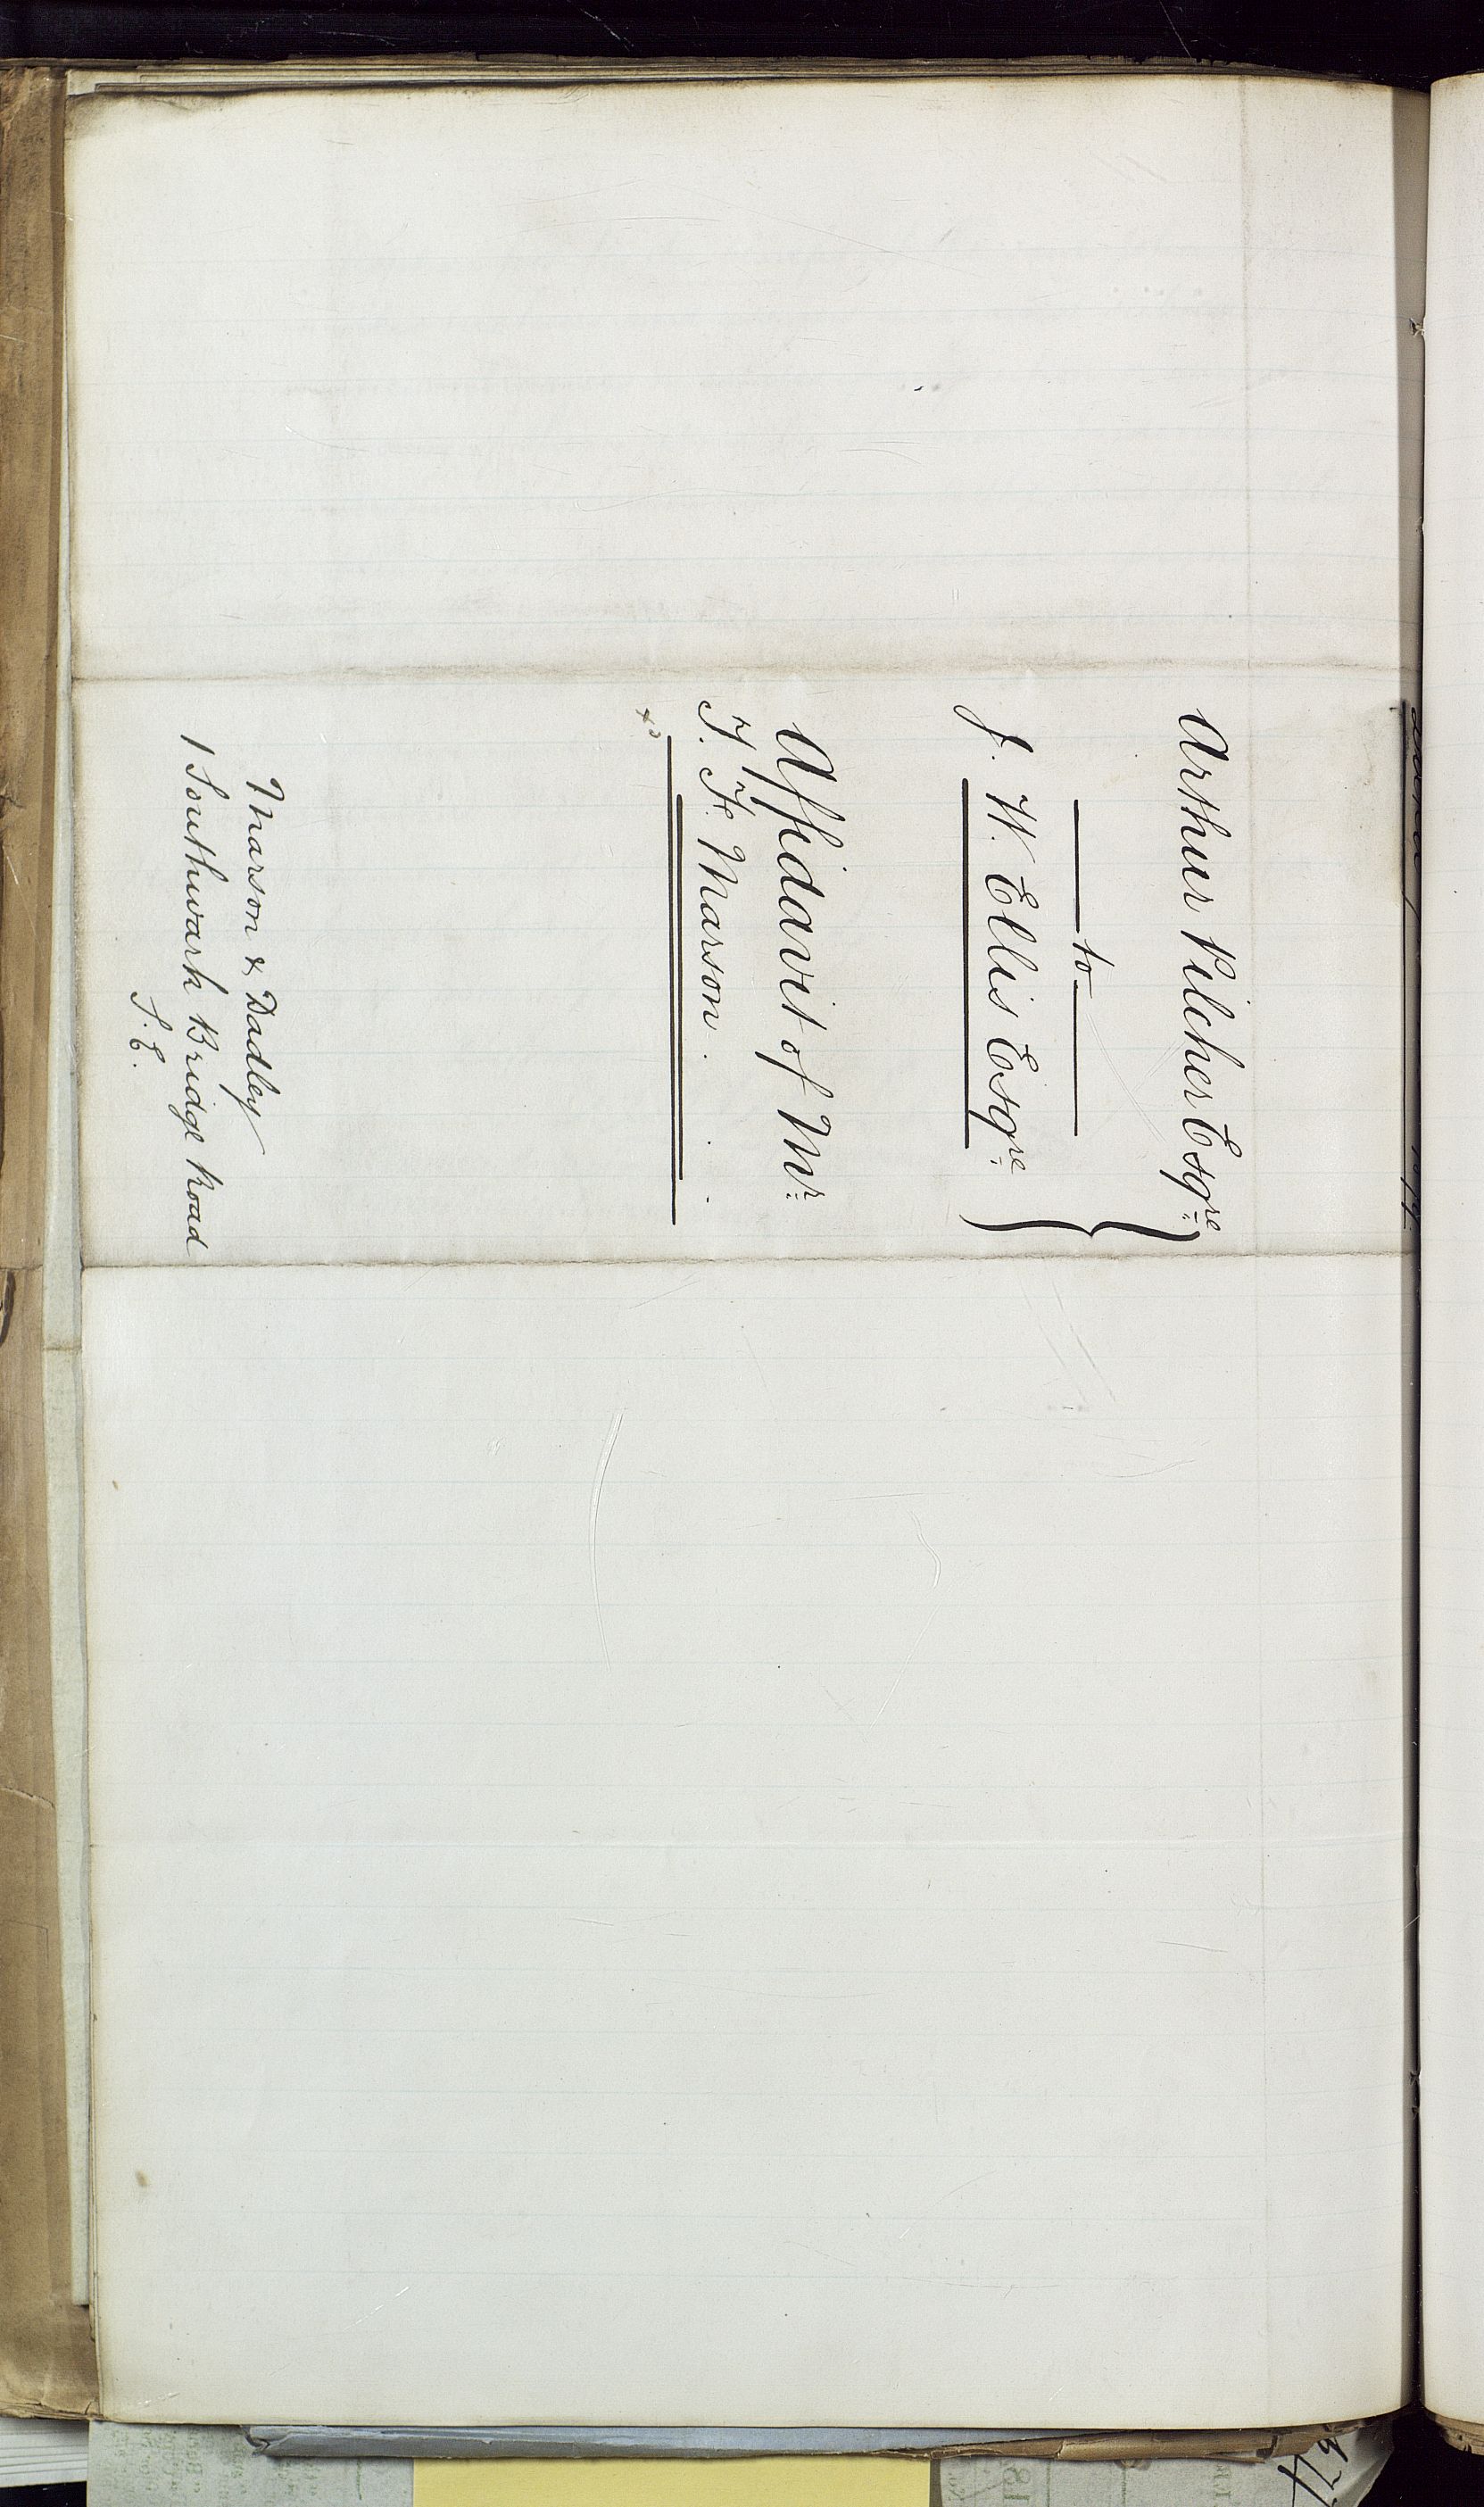 Arthur Pilcher Esqre
to
J. W. Ellis Esqre
Affidavit of Mr
T. F. Marson.
Marson & Dadley
1 Southwark Bridge Road
S.E.